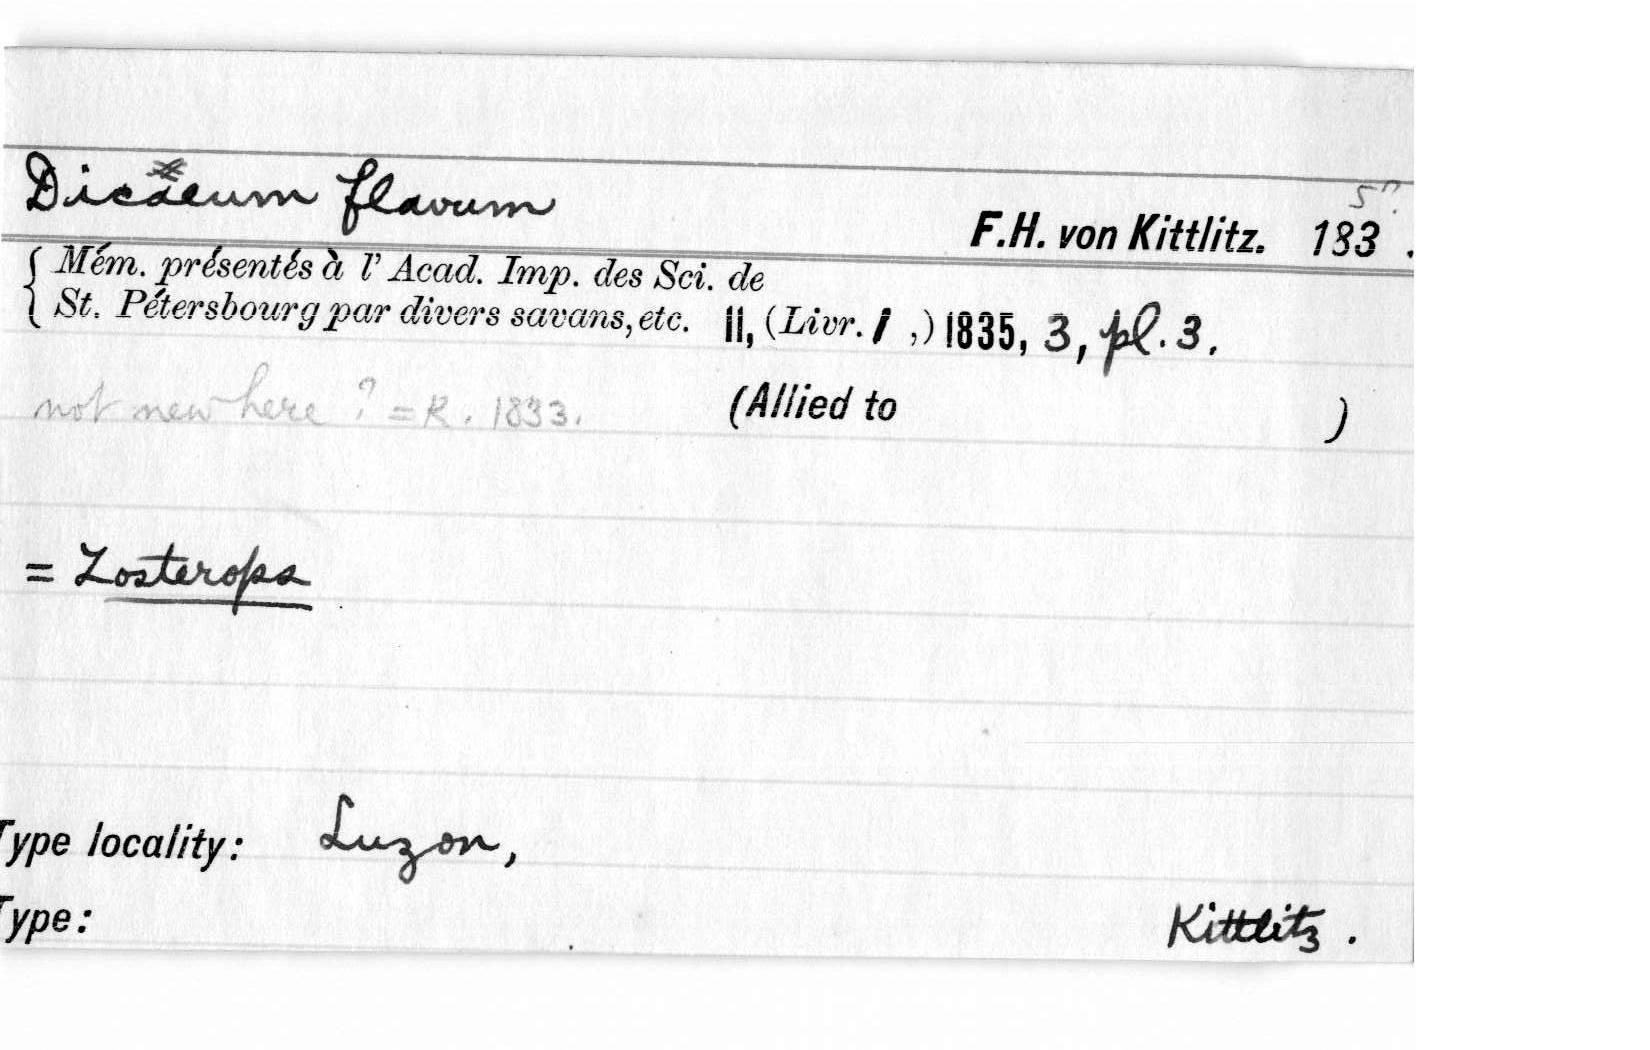 Dicaeum flavum
F.H. von Kittlitz. 1835?.
Mém. présentés à l' Acad. Imp. des Sci. de
St. Pétersbourg par divers savans, etc. II, (Livr. 1 ,) 1835, 3, pl. 3.
not new here? = K. 1833. (Allied to )
= Zosterops
Type locality: Luzon,
Type: Kittlitz.